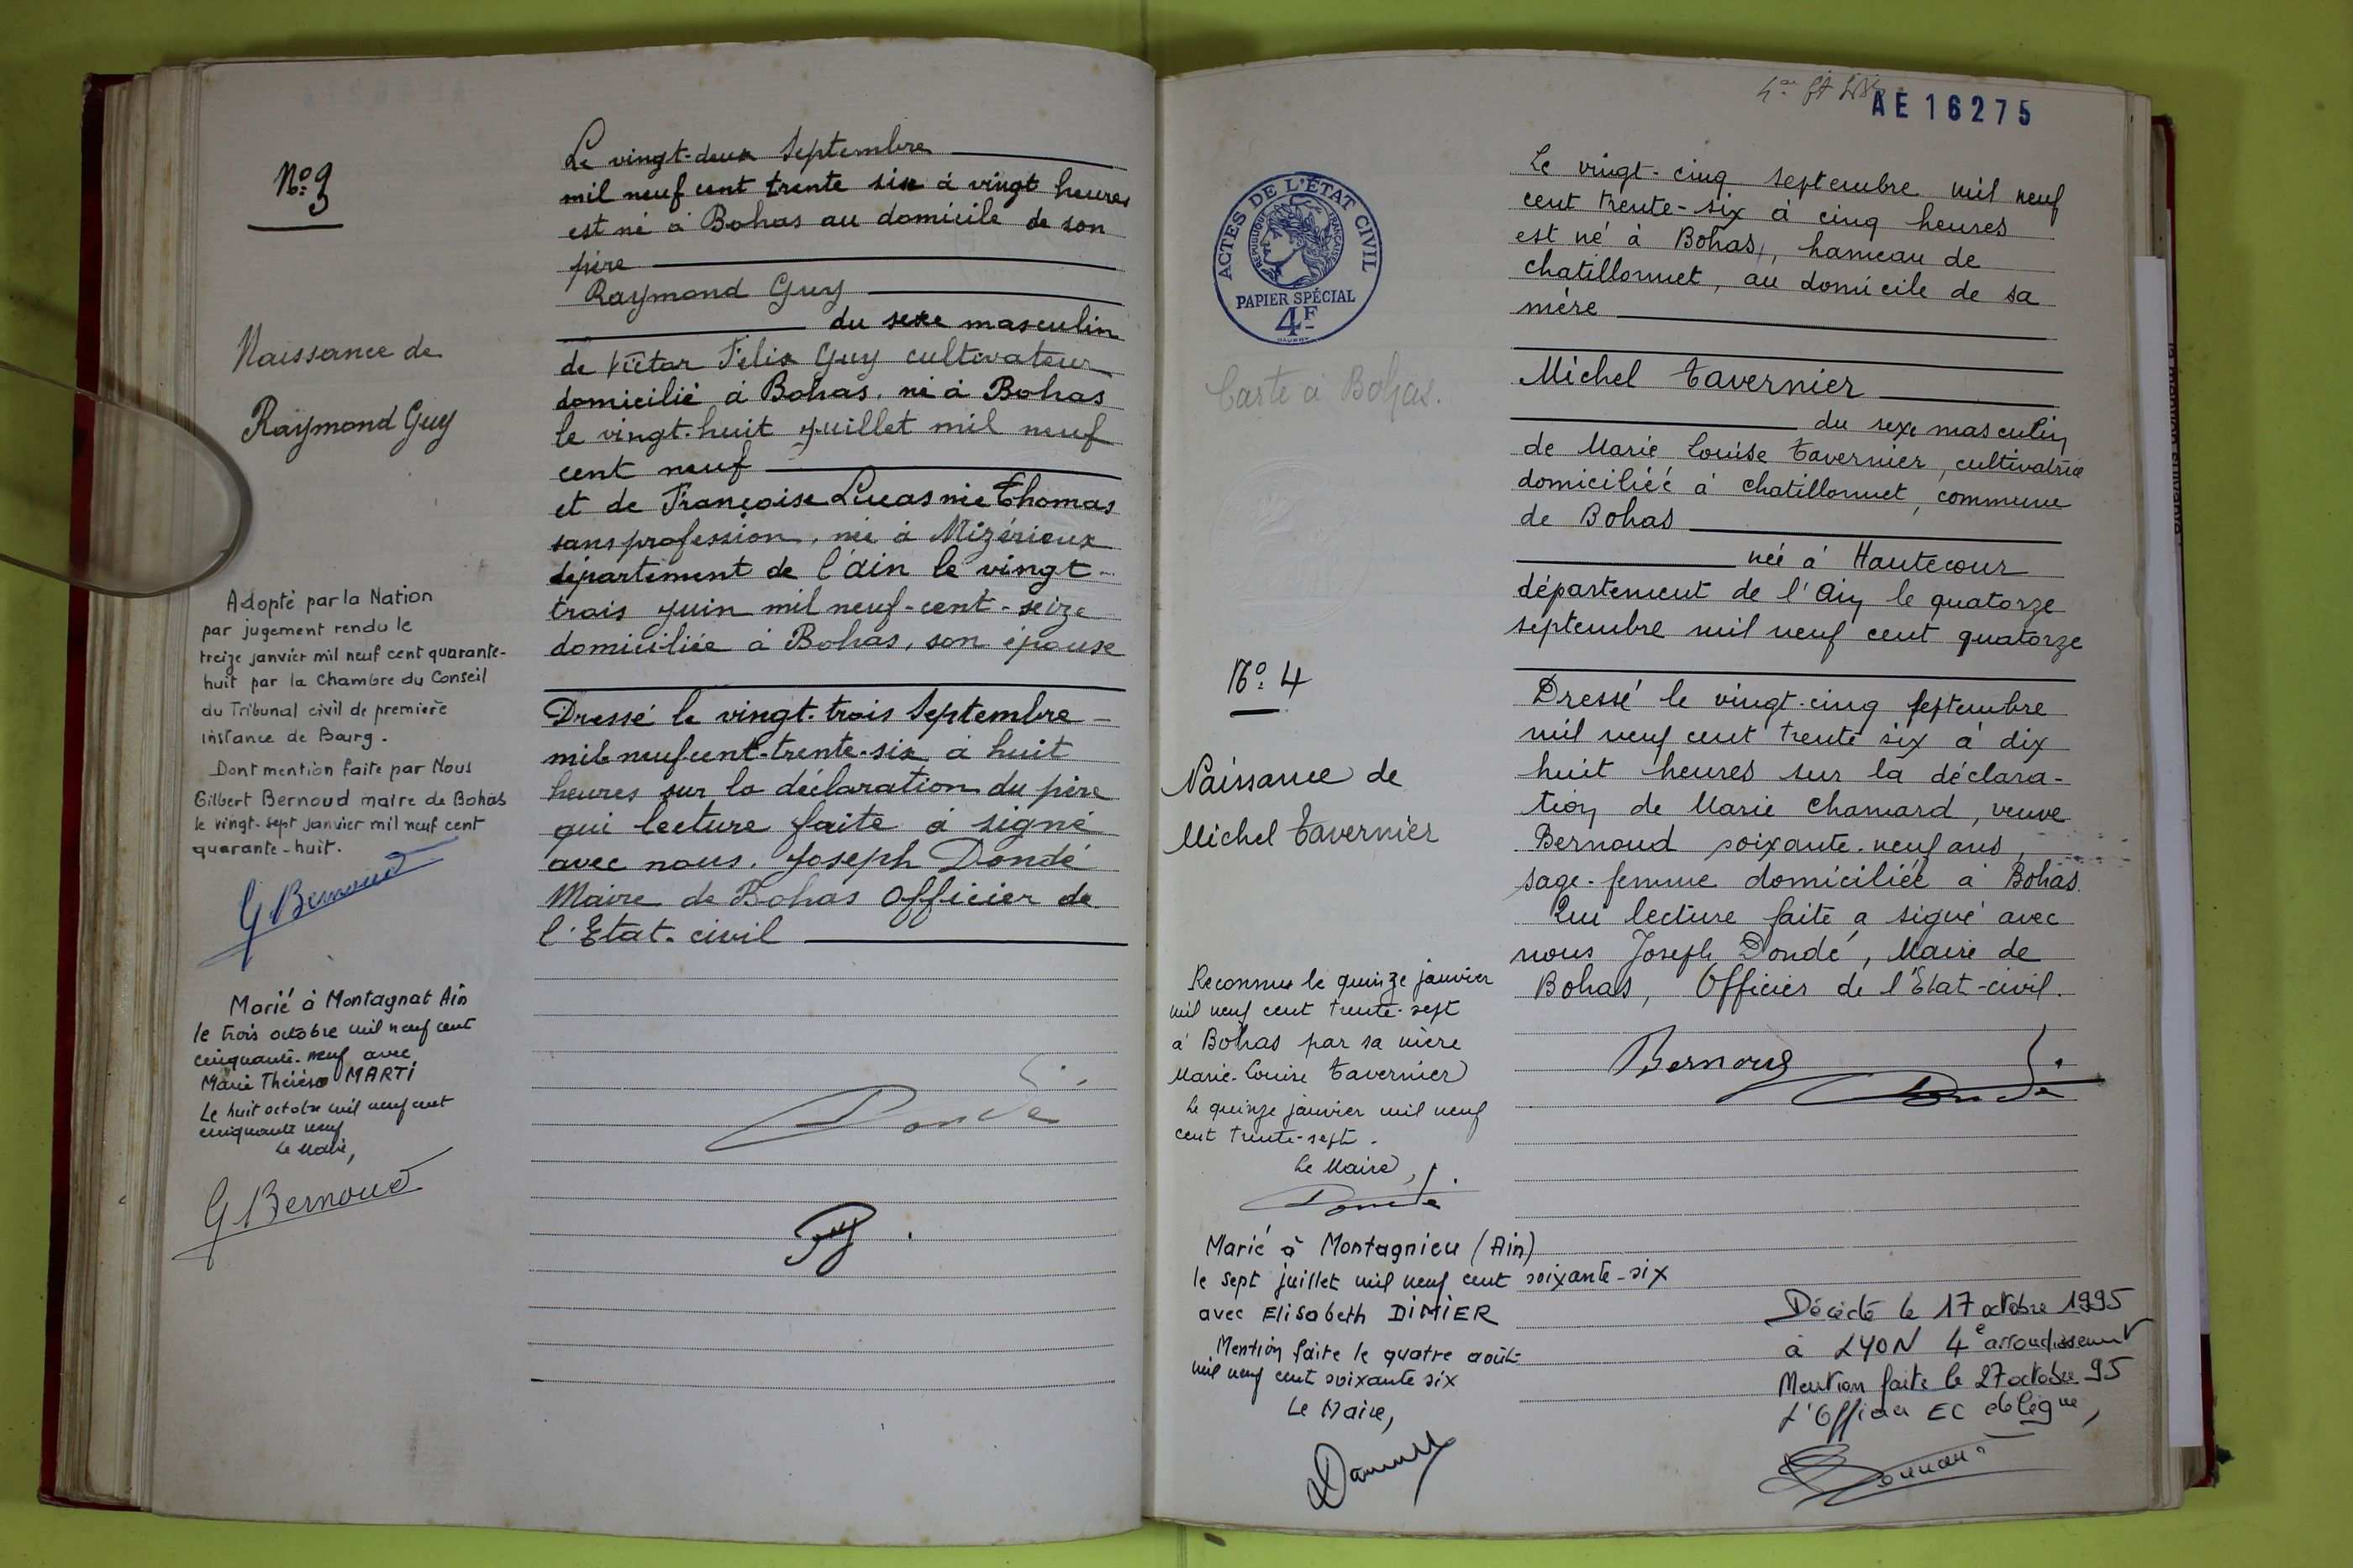 N° 3
Naissance de
Raymond Guy
Adopté par la Nation
par jugement rendu le
treize janvier mil neuf cent quarante-
huit par la Chambre du Conseil
du Tribunal civil de première
instance de Bourg.
Dont mention faite par Nous
Gilbert Bernoud maire de Bohas
le vingt-sept janvier mil neuf cent
quarante-huit.
G Bernoud
Marié à Montagnat Ain
le trois octobre mil neuf cent
cinquante-neuf avec
Marie Thérèse MARTI
Le huit octobre mil neuf cent
cinquante neuf
Le Maire,
G Bernoud
Le vingt-deux Septembre
mil neuf cent trente six à vingt heures
est né à Bohas au domicile de son
père
Raymond Guy
du sexe masculin
de Victor Félix Guy cultivateur
domicilié à Bohas, né à Bohas
le vingt-huit juillet mil neuf
cent neuf
et de Françoise Lucas née Thomas
sans profession, née à Mizérieux
département de l'ain le vingt-
trois juin mil neuf-cent-seize
domiciliée à Bohas, son épouse
Dressé le vingt-trois Septembre
mil neuf cent-trente-six à huit
heures sur la déclaration du père
qui lecture faite à signé
avec nous. Joseph Dondé
Maire de Bohas Officier de
l'Etat-civil
Dondé
AE 16275
ACTES DE L'ÉTAT CIVIL
REPUBLIQUE FRANÇAISE
PAPIER SPÉCIAL
4F
Carte à Bohas.
N° 4
Naissance de
Michel Tavernier
Reconnu le quinze janvier
mil neuf cent trente-sept
à Bohas par sa mère
Marie-Louise Tavernier
Le quinze janvier mil neuf
cent trente-sept.
Le Maire,
Dondé
Marié à Montagnieu (Ain)
le sept juillet mil neuf cent soixante-six
avec Elisabeth DIMIER
Mention faite le quatre août
mil neuf cent soixante six
Le Maire,
Le vingt-cinq septembre mil neuf
cent trente-six à cinq heures
est né à Bohas, hameau de
chatillonnet, au domicile de sa
mère
Michel Tavernier
du sexe masculin
de Marie Louise Tavernier, cultivatrice
domiciliée à chatillonnet, commune
de Bohas
née à Hautecour
département de l'Ain le quatorze
septembre mil neuf cent quatorze
Dressé le vingt-cinq septembre
mil neuf cent trente six à dix
huit heures sur la déclara-
tion de Marie Chanard, veuve
Bernoud soixante-neuf ans,
sage-femme domiciliée à Bohas.
Qui lecture faite a signé avec
nous Joseph Dondé, Maire de
Bohas, Officier de l'Etat-civil.
Bernoud
Dondé
Décédé le 17 octobre 1995
à LYON 4e arrondissement
Mention faite le 27 octobre 95
L'Officier EC délégué,